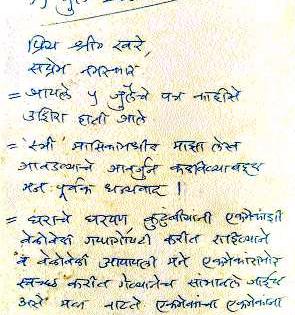 प्रिय श्री खरे,
सप्रेम नमस्कार
= आपले ५ जुलैचे पत्र काहीसे
उशिरा हाती आले
= 'स्त्री' मासिकामधील माझा लेख
आवडल्याचे आवर्जुन कळविल्याबद्दल
मनःपूर्वक धन्यवाद !
= घराचे घरपण कुटुंबीयांनी एकमेकांशी
वेळोवेळी गप्पागोष्टी करीत राहिल्याने
व वेळोवेळी आपापली मते एकमेकांसमोर
स्पष्ट करीत गेल्यानेच सांभाळले जाईल
असे मला वाटते एकमेकांना एकमेकांचा